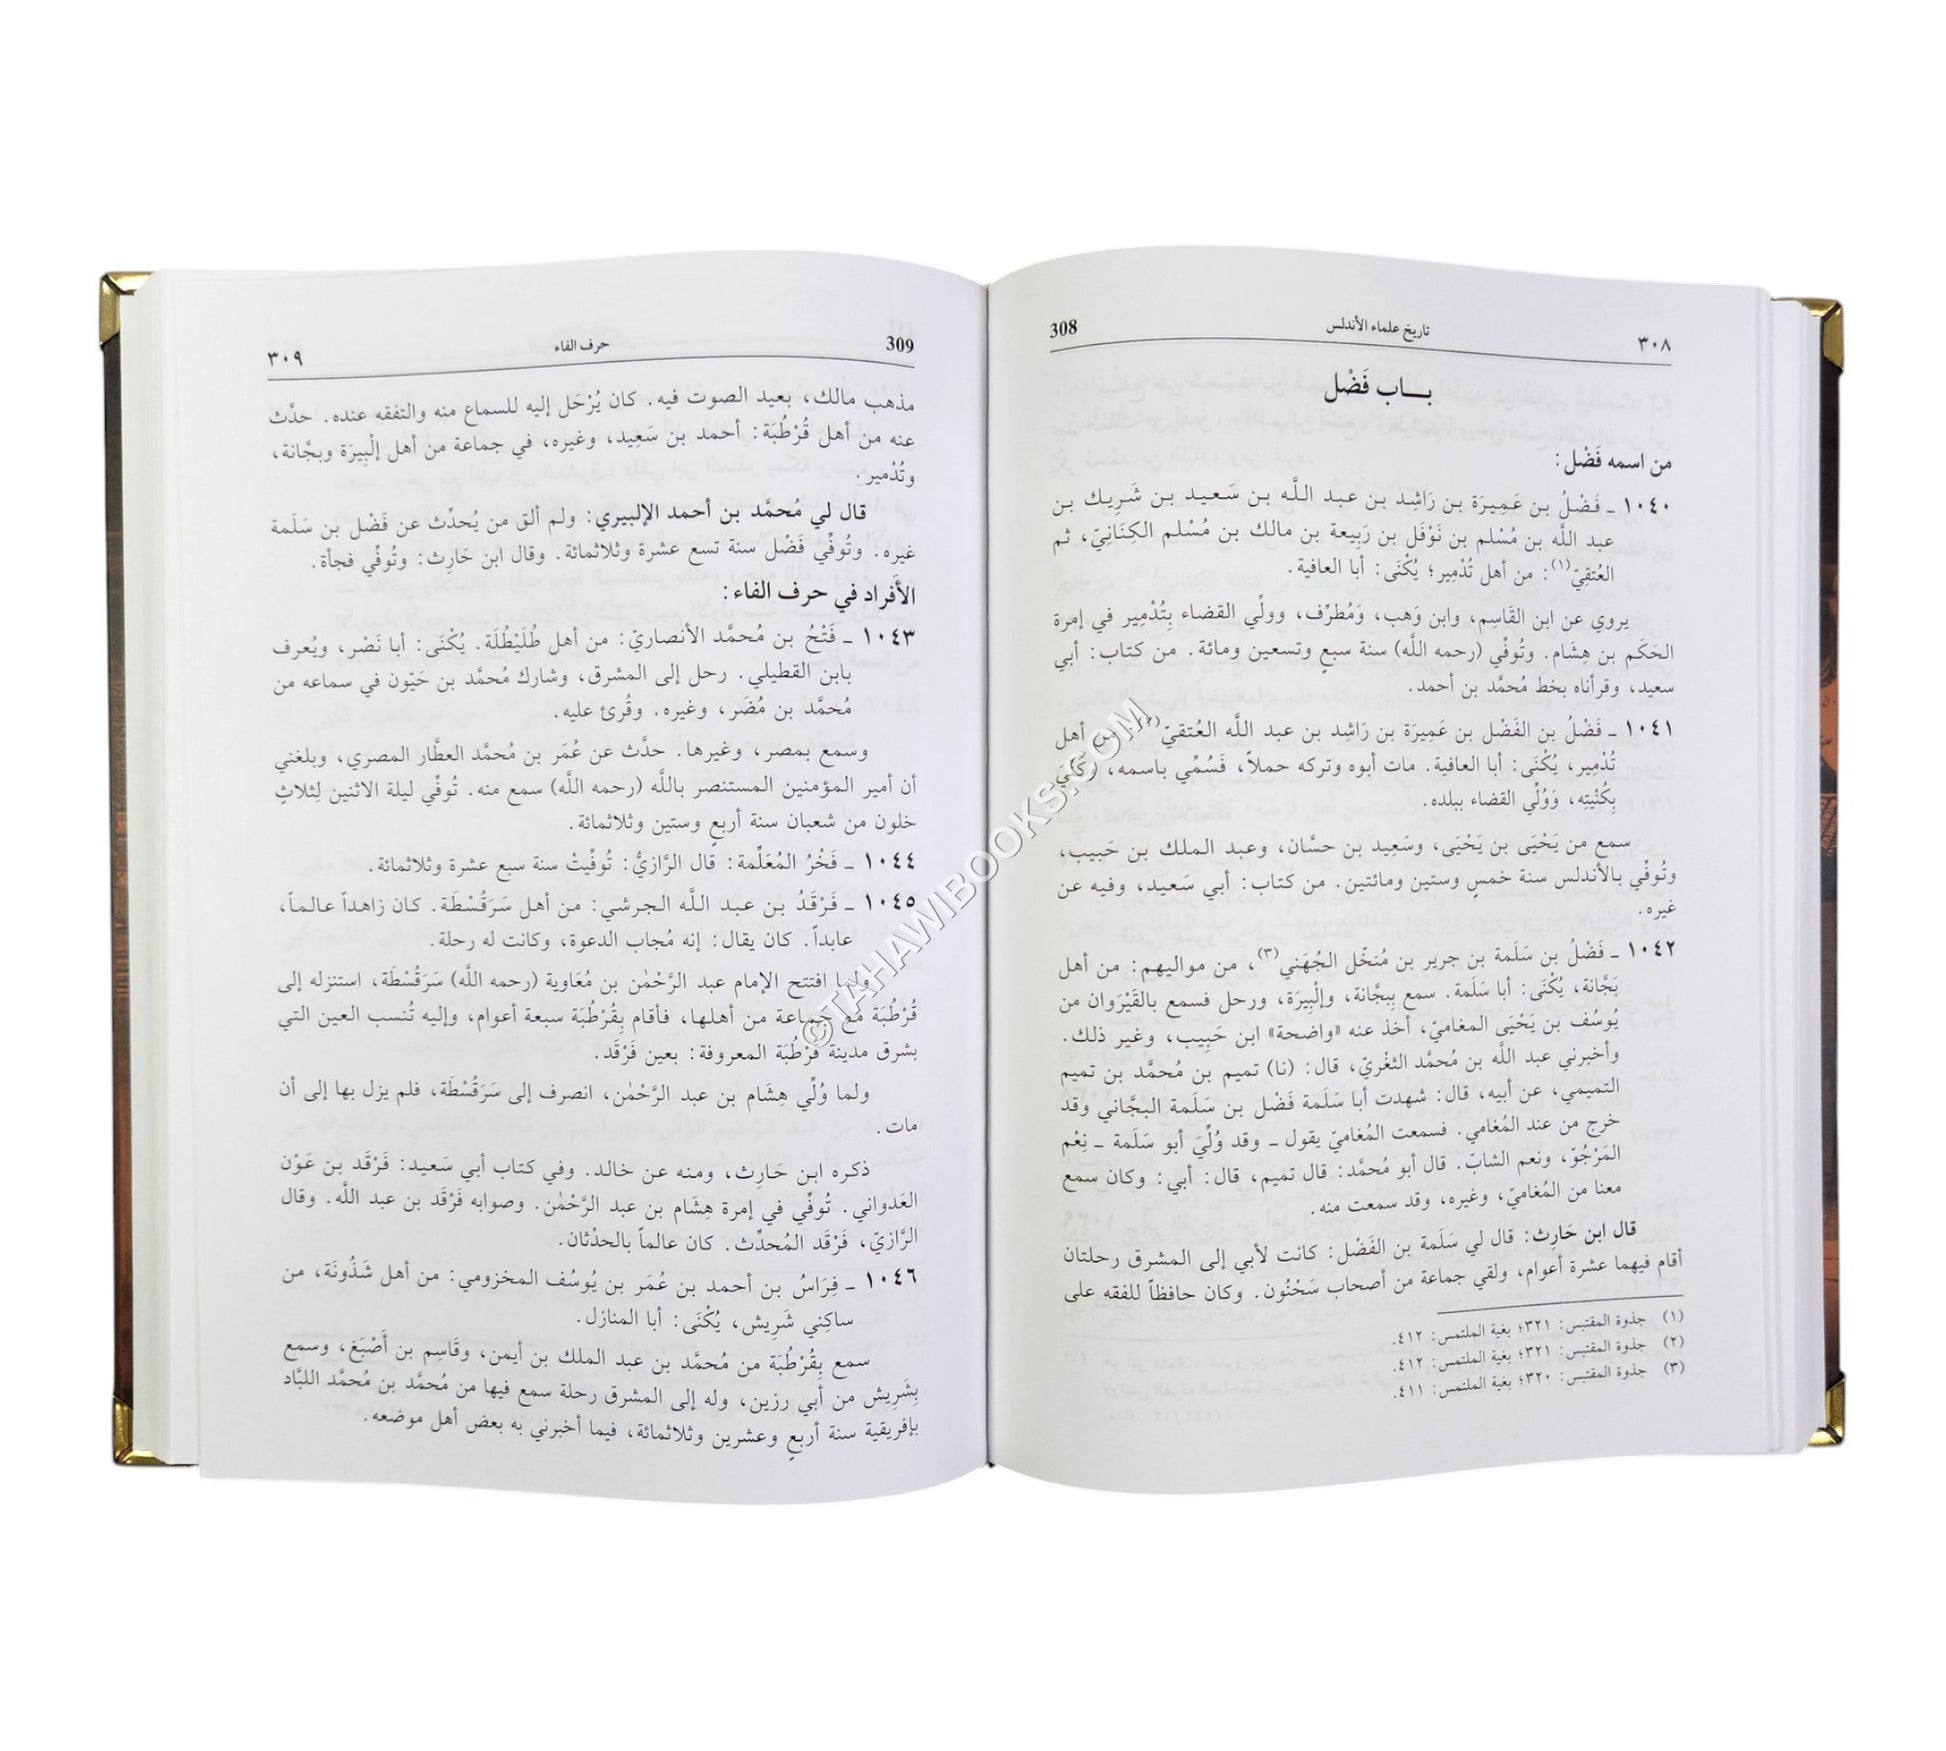 ٣٠٨ تاريخ علماء الأندلس 308
بـــاب فَضْل
من اسمه فَضْل:
١٠٤٠ ـ فَضْلُ بن عَمِيرَة بن رَاشِد بن عبد اللَّه بن سَعيد بن شَرِيك بن
عبد اللَّه بن مُسْلم بن نَوْفَل بن رَبِيعة بن مالك بن مُسْلم الكِنَانِيّ، ثم
العُتقِيّ(١): من أهل تُدْمِير؛ يُكْنَى: أبا العافية.
يروي عن ابن القَاسِم، وابن وَهب، وَمُطرِّف، وولِّي القضاء بِتُدْمِير في إمرة
الحَكَم بن هِشَام. وتُوفِّي (رحمه اللَّه) سنة سبعٍ وتسعين ومائة. من كتاب: أبي
سعيد، وقرأناه بخط مُحمَّد بن أحمد.
١٠٤١ ـ فَضْلُ بن الفَضْل بن عَمِيرَة بن رَاشِد بن عبد اللَّه العُتقيّ(٢): من أهل
تُدْمِير، يُكْنَى: أبا العافية. مات أبوه وتركه حملاً، فَسُمِّي باسمه، وَكُنيَ
بِكُنْيَتِه، وَوُلِّي القضاء ببلده.
سمع من يَحْيَى بن يَحْيَى، وسَعِيد بن حسَّان، وعبد الملك بن حَبيب،
وتُوفِّي بالأندلس سنة خمسٍ وستين ومائتين. من كتاب: أبي سَعيد، وفيه عن
غيره.
١٠٤٢ ـ فَضْلُ بن سَلَمة بن جرير بن مُنخّل الجُهَني(٣)، من مواليهم: من أهل
بَجَّانة، يُكْنَى: أبا سَلَمة. سمع بِبجَّانة، وإلْبِيرَة، ورحل فسمع بالقَيْرَوان من
يُوسُف بن يَحْيَى المغاميّ، أخذ عنه «واضحة» ابن حَبِيب، وغير ذلك.
وأخبرني عبد اللَّه بن مُحمَّد الثغْريّ، قال: (نا) تميم بن مُحمَّد بن تميم
التميمي، عن أبيه، قال: شهدت أبا سَلَمة فَضْل بن سَلَمة البجَّاني وقد
خرج من عند المُغامي. فسمعت المُغاميّ يقول ـ وقد وُلِّيَ أبو سَلَمة ـ نِعْم
المَرْجُوّ، ونعم الشابّ. قال أبو مُحمَّد: قال تميم، قال: أبي: وكان سمع
معنا من المُغاميّ، وغيره، وقد سمعت منه.
قال ابن حَارِث: قال لي سَلَمة بن الفَضْل: كانت لأبي إلى المشرق رحلتان
أقام فيهما عشرة أعوام، ولقي جماعة من أصحاب سَحْنُون. وكان حافظاً للفقه على
(١) جذوة المقتبس: ٣٢١؛ بغية الملتمس: ٤١٢.
(٢) جذوة المقتبس: ٣٢١؛ بغية الملتمس: ٤١٢.
(٣) جذوة المقتبس: ٣٢٠؛ بغية الملتمس: ٤١١.
309 حرف الفاء ٣٠٩
مذهب مالك، بعيد الصوت فيه. كان يُرْحَل إليه للسماع منه والتفقه عنده. حدَّث
عنه من أهل قُرْطُبَة: أحمد بن سَعِيد، وغيره، في جماعة من أهل إلْبِيرَة وبجَّانة،
وتُدْمير.
قال لي مُحمَّد بن أحمد الإلبيري: ولم ألق من يُحدِّث عن فَضْل بن سَلَمة
غيره. وتُوفِّي فَضْل سنة تسع عشرة وثلاثمائة. وقال ابن حَارِث: وتُوفِّي فجأة.
الأَفراد في حرف الفاء:
١٠٤٣ ـ فَتْحُ بن مُحمَّد الأنصاريّ: من أهل طُلَيْطُلَة. يُكْنَى: أبا نَصْر، ويُعرف
بابن القطيلي. رحل إلى المشرق، وشارك مُحمَّد بن حَيّون في سماعه من
مُحمَّد بن مُضَر، وغيره. وقُرئ عليه.
وسمع بمصر، وغيرها. حدَّث عن عُمَر بن مُحمَّد العطَّار المصري، وبلغني
أن أمير المؤمنين المستنصر باللَّه (رحمه اللَّه) سمع منه. تُوفِّي ليلة الاثنين لِثلاثٍ
خلون من شعبان سنة أربعٍ وستين وثلاثمائة.
١٠٤٤ ـ فَخْرُ المُعَلِّمة: قال الرَّازيُّ: تُوفِّيتْ سنة سبع عشرة وثلاثمائة.
١٠٤٥ ـ فَرْقَدُ بن عبد اللَّه الجرشي: من أهل سَرَقُسْطَة. كان زاهداً عالماً،
عابداً. كان يقال: إنه مُجاب الدعوة، وكانت له رحلة.
ولما افتتح الإمام عبد الرَّحْمٰن بن مُعَاوية (رحمه اللَّه) سَرَقُسْطَة، استنزله إلى
قُرْطُبَة مع جَماعة من أهلها، فأقام بِقُرْطُبَة سبعة أعوام، وإليه تُنسب العين التي
بشرق مدينة قُرْطُبَة المعروفة: بعين فَرْقَد.
ولما وُلِّي هِشَام بن عبد الرَّحْمٰن، انصرف إلى سَرَقُسْطَة، فلم يزل بها إلى أن
مات.
ذكره ابن حَارِث، ومنه عن خالد. وفي كتاب أبي سَعيد: فَرْقَد بن عَوْن
العَدواني. تُوفِّي في إمرة هِشَام بن عبد الرَّحْمٰن. وصوابه فَرْقَد بن عبد اللَّه. وقال
الرَّازيّ، فَرْقَد المُحدِّث. كان عالماً بالحدْثان.
١٠٤٦ ـ فِرَاسُ بن أحمد بن عُمَر بن يُوسُف المخزومي: من أهل شَذُونَة، من
ساكِني شَرِيش، يُكْنَى: أبا المنازل.
سمع بِقُرْطُبَة من مُحمَّد بن عبد الملك بن أيمن، وقَاسِم بن أَصْبَغ، وسمع
بِشَرِيش من أبي رزين، وله إلى المشرق رحلة سمع فيها من مُحمَّد بن مُحمَّد اللبَّاد
بإفريقية سنة أربعٍ وعشرين وثلاثمائة، فيما أخبرني به بعض أهل موضعه.
©TAHAWIBOOKS.COM